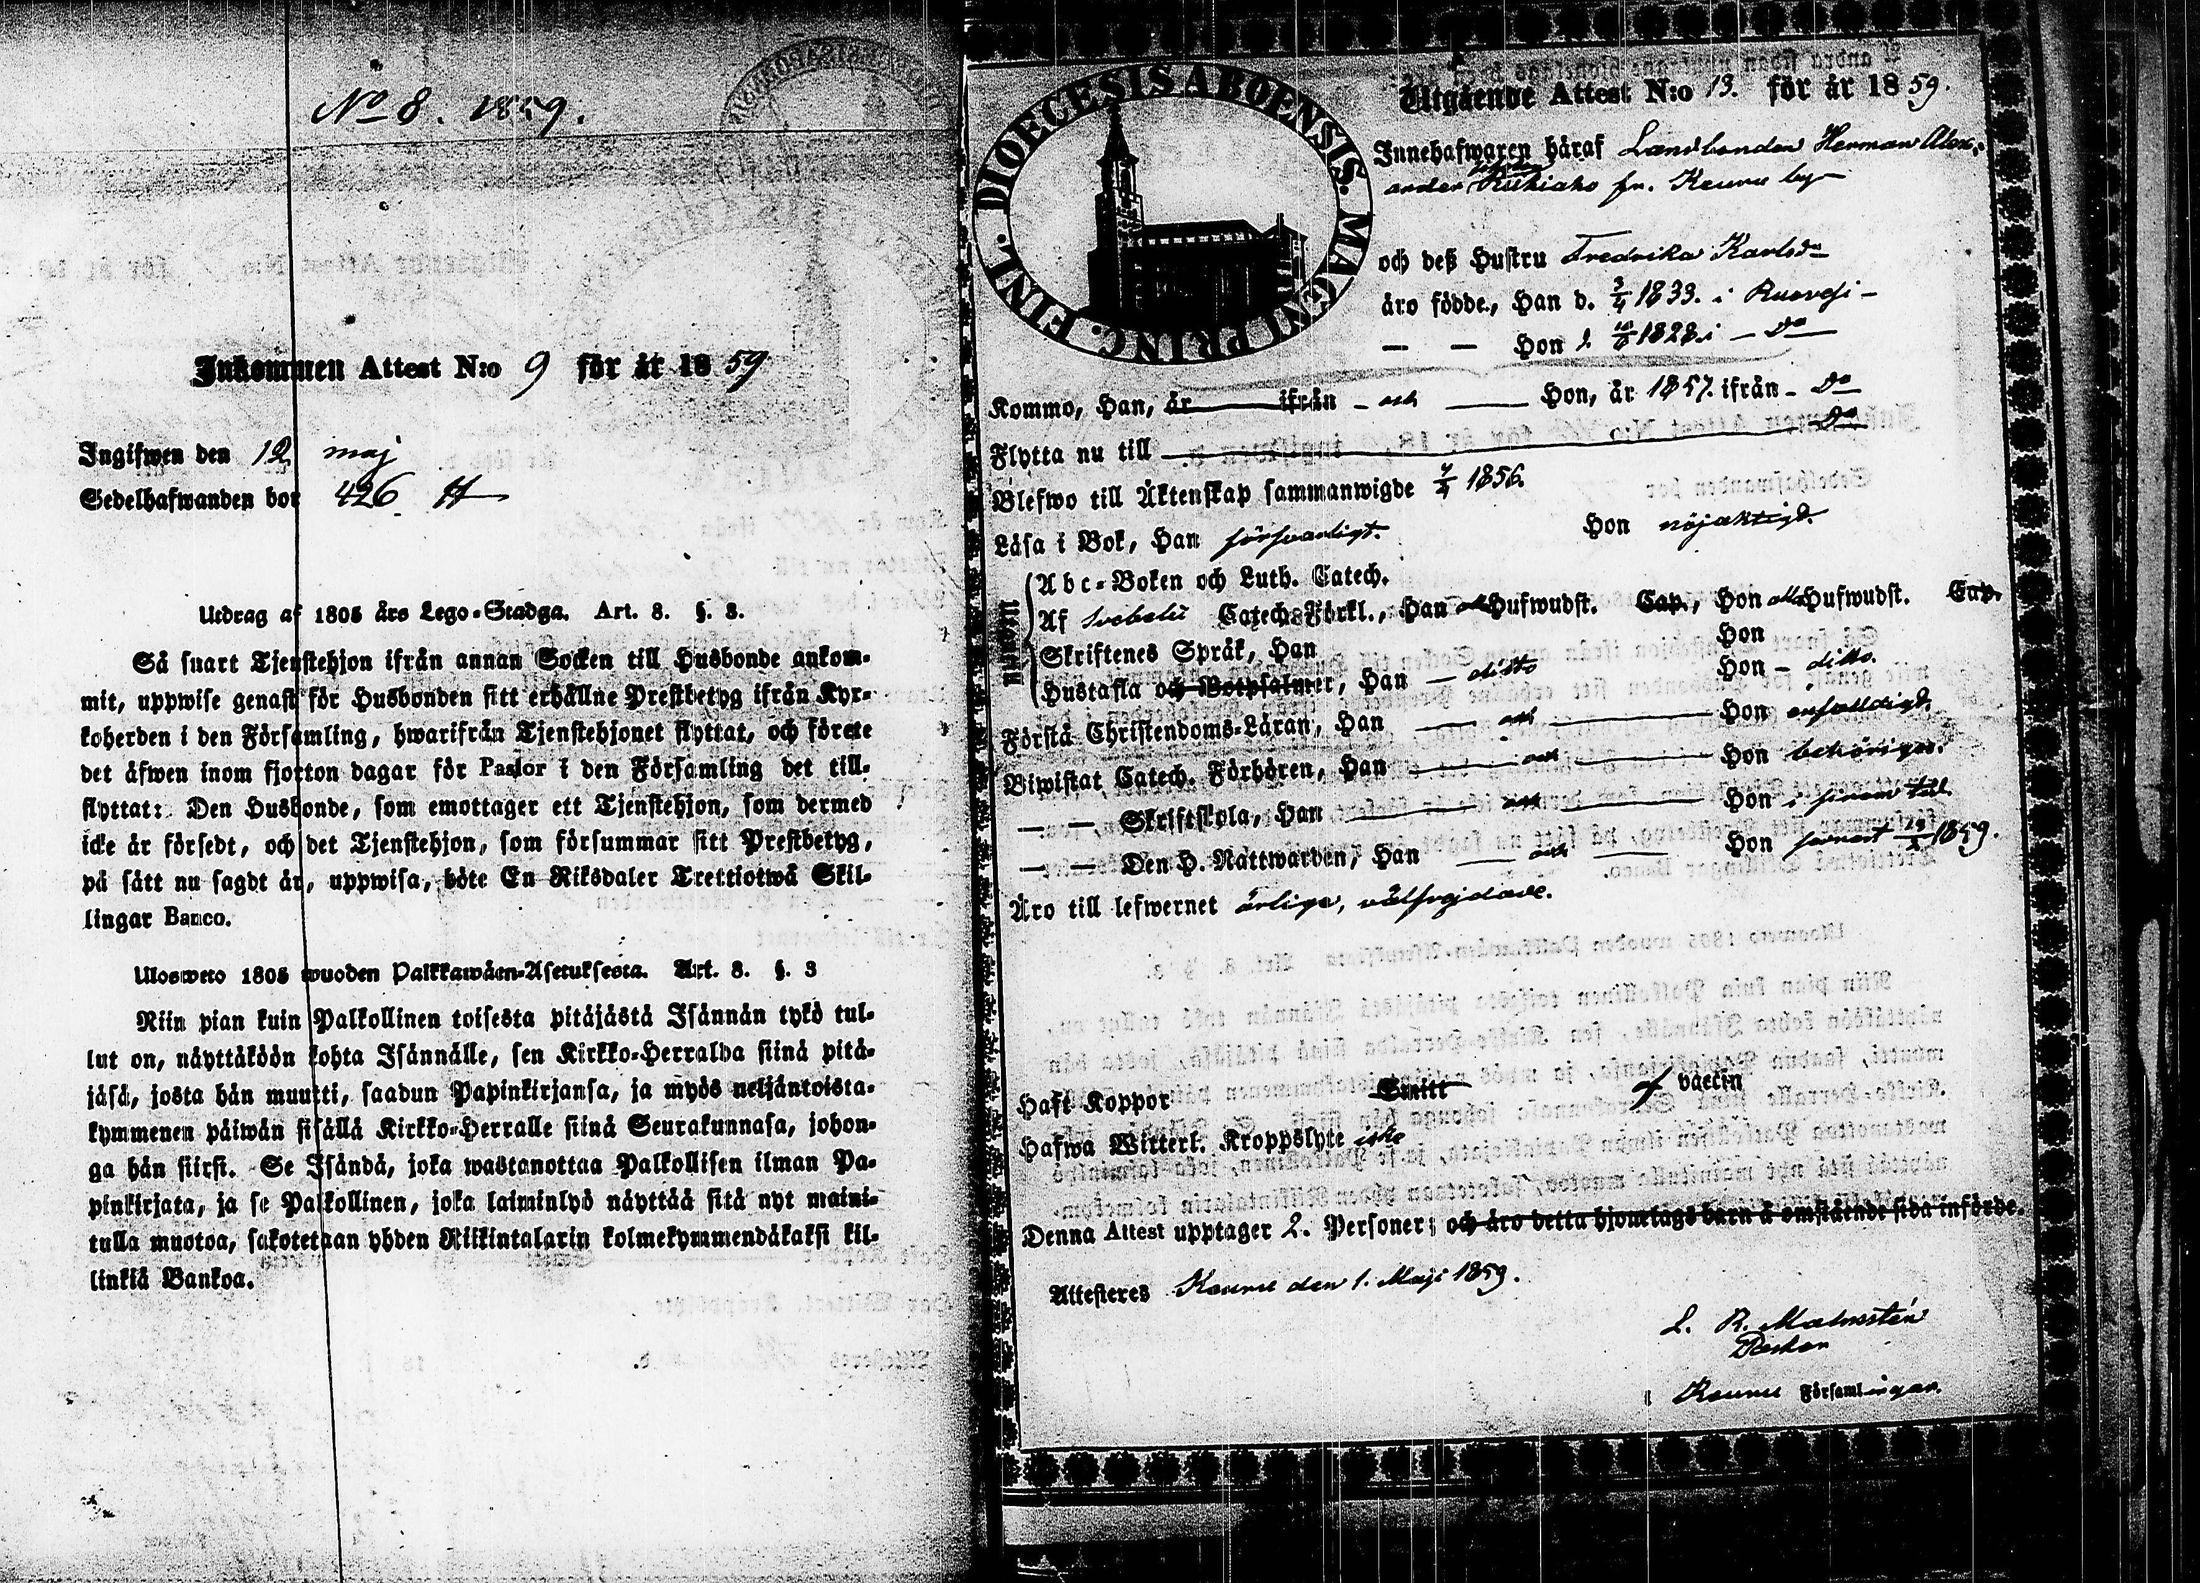 No 8. 1859.
Inkommen Attest N:o 9 för år 1859
Ingifwen den 12 maj
Sedelhafwanden bor 426
Utdrag af 1805 års Lego-Stadga. Art. 8. §. 3.
Så snart Tjenstehjon ifrån annan Socken till Husbonde ankom-
mit, uppwise genast för Husbonden sitt erhållne Prestbetyg ifrån Kyr-
koherden i den Församling, hwarifrån Tjenstehjonet flyttat, och förete
det äfwen inom fjorton dagar för Pastor i den Församling det till-
flyttat: Den Husbonde, som emottager ett Tjenstehjon, som dermed
icke är försedt, och det Tjenstehjon, som försummar sitt Prestbetyg,
på sätt nu sagdt är, uppwisa, böte En Riksdaler Trettiotwå Skil-
lingar Banco.
Ulosweto 1805 wuoden Palkkawäen-Asetuksesta. Art. 8. §. 3
Niin pian kuin Palkollinen toisesta pitäjästä Isännän tykö tul-
lut on, näyttäköön kohta Isännälle, sen Kirkko-Herralda siinä pitä-
jäsä, josta hän muutti, saadun Papinkirjansa, ja myös neljäntoista-
kymmenen päiwän sisällä Kirkko-Herralle siinä Seurakunnasa, johon-
ga hän siirsi. Se Isändä, joka wastanottaa Palkollisen ilman Pa-
pinkirjata, ja se Palkollinen, joka laiminlyö näyttää sitä nyt maini-
tulla muotoa, sakotetaan yhden Riikintalarin kolmekymmendäkaksi kil-
linkiä Bankoa.
DIOECESIS ABOENSIS. MAGNI PRINC. FINL.
Utgående Attest N:o 13. för år 1859.
Innehafwaren häraf Landbonden Herman Alex-
ander fr. Keuru by
och deß Hustru Fredrika Karlsdr
äro födde, Han d. 3/4 1833. i Ruovesi -
— — Hon d. 1828. i - Do
Kommo, Han, år ifrån - och Hon, år 1857. ifrån - Do
Flytta nu till Do
Blefwo till Äktenskap sammanwigde 1856.
Läsa i Bok, Han försvarligt. Hon nöjaktigt.
Abc-Boken och Luth. Catech.
Af Svebelii Catech. Förkl., Han Hufwudst. Cap., Hon Hufwudst. Cap.
Skriftenes Språk, Han Hon
Hustafla och Botpsalmer, Han — ditto Hon - ditto.
Förstå Christendoms-Läran, Han — och — Hon enfaldigt.
Biwistat Catech. Förhören, Han — och — Hon behörigen.
— — Skriftskola, Han — och — Hon i sinom tid.
— — Den H. Nattwarden, Han — och — Hon senast 1859.
Äro till lefwernet ärliga, välfrejdade.
Haft Koppor Smitt af vaccin
Hafwa Witterl. Kroppslyte icke
Denna Attest upptager 2. Personer; och äro detta hjonelags barn å omstående sida införde.
Attesteres Keuru den 1. Maji 1859.
L. R. Malmstén
Keuru Församlingar.